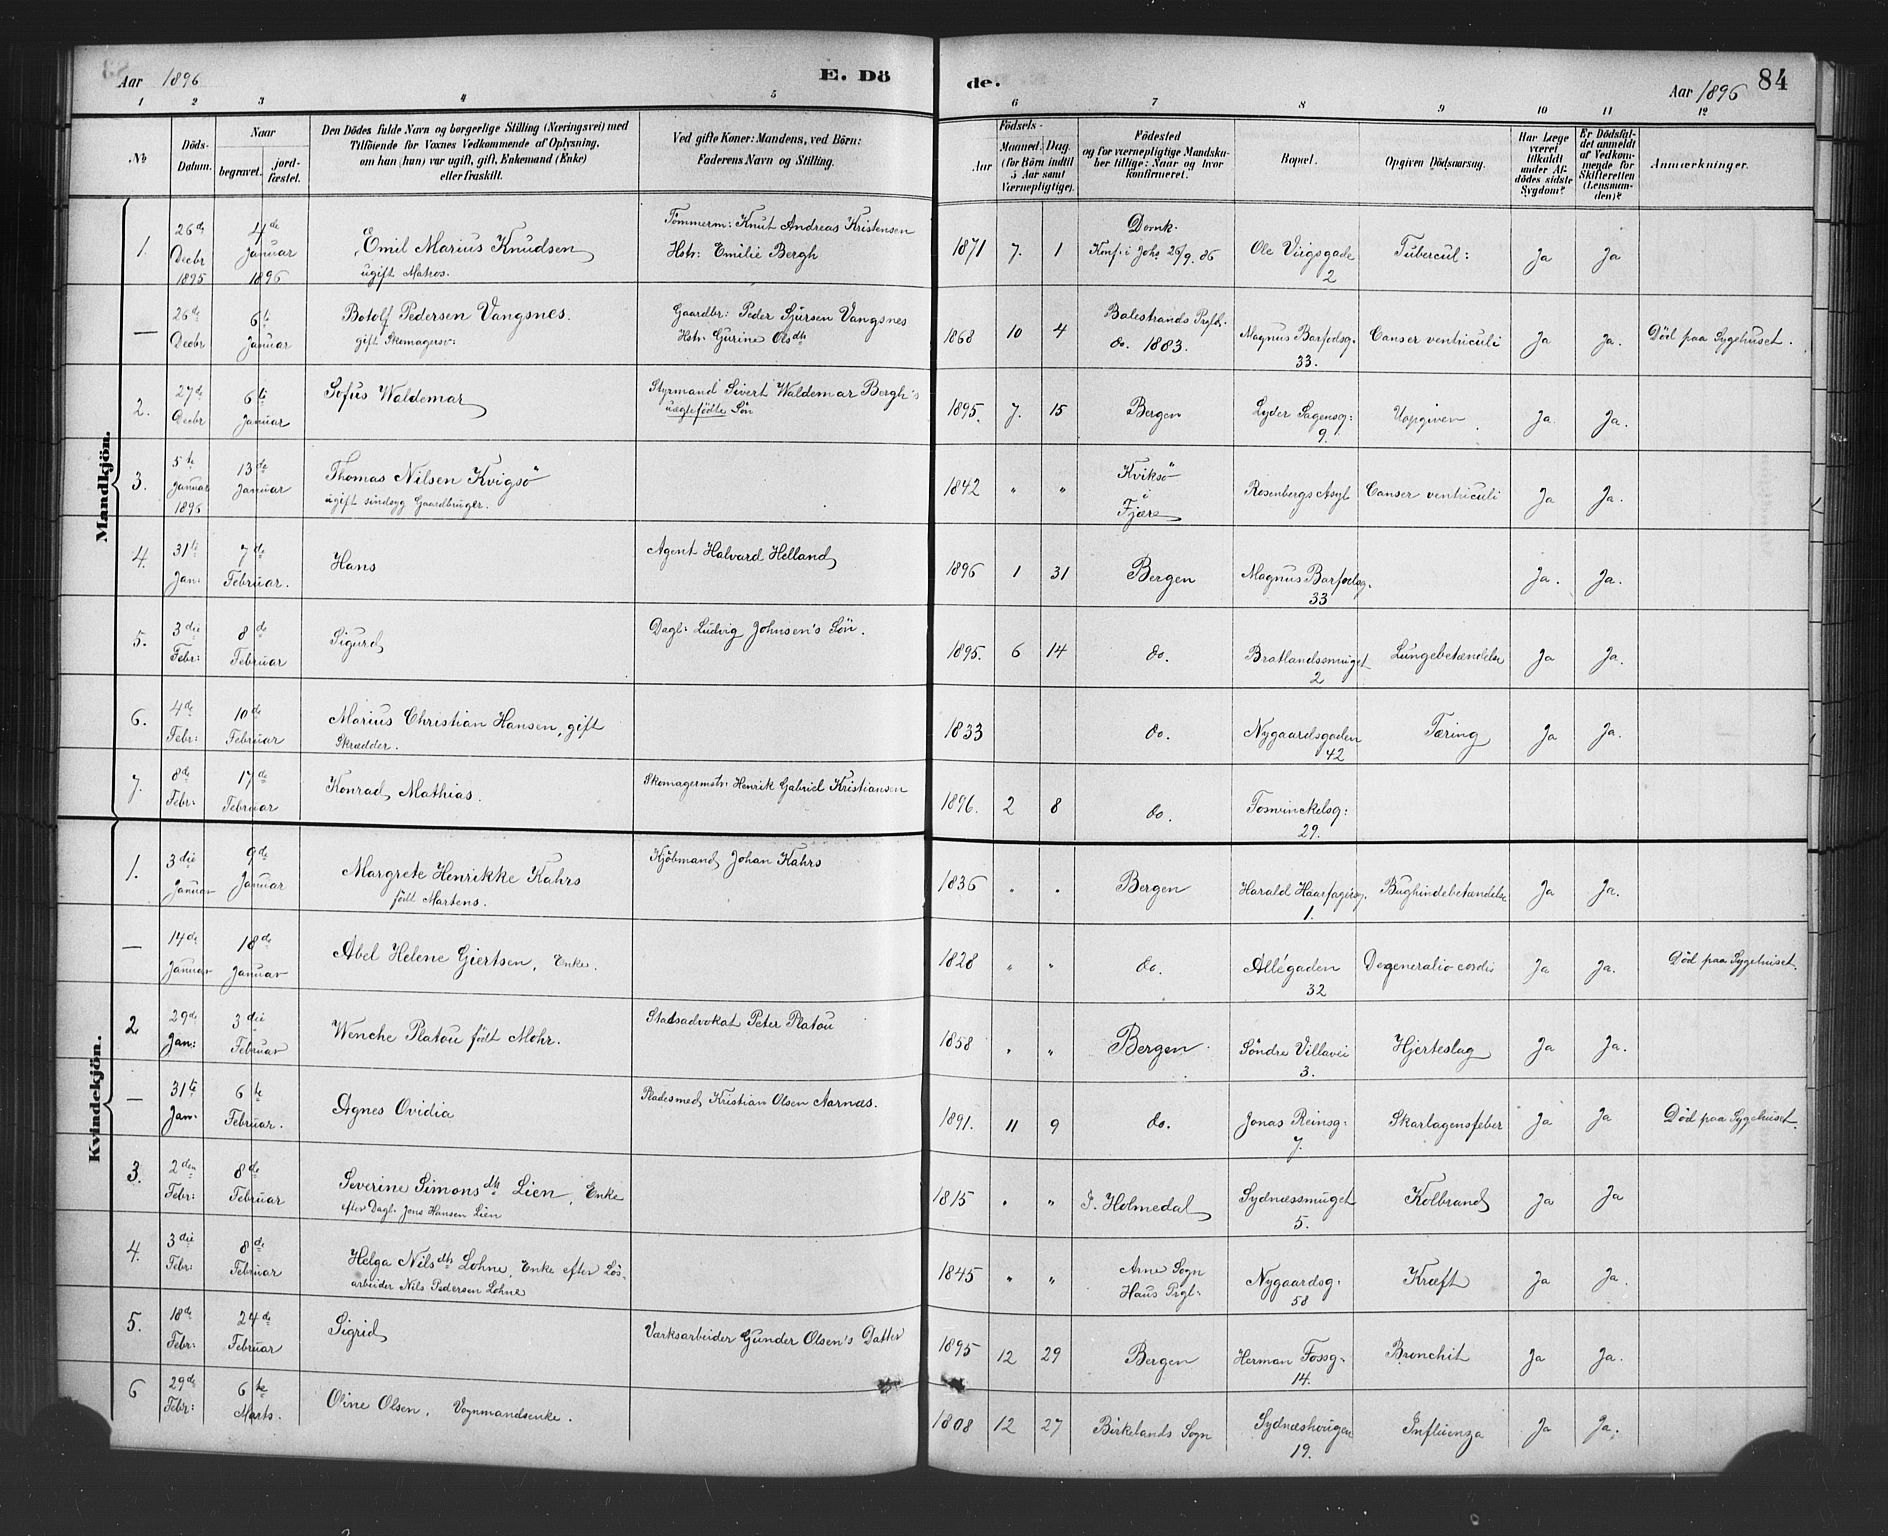 Aar 1896
E. Dö
de.
Aar 1896
84
1 2 3 4 5 6 7 8 9 10 11 12
No
Döds-Datum.
Naar
begravet.
jord-fæstet.
Den Dödes fulde Navn og borgerlige Stilling (Næringsvei) med
Tilföiende for Voxnes Vedkommende af Oplysning,
om han (hun) var ugift, gift, Enkemand (Enke)
eller fraskilt.
Ved gifte Koner: Mandens, ved Börn:
Faderens Navn og Stilling.
Födsels-
Aar
Maaned. Dag.
(for Börn indtil
5 Aar samt
Værnepligtige).
Födested
og for værnepligtige Mandska-
ber tillige: Naar og hvor
konfirmeret.
Bopæl.
Opgiven Dödsaarsag.
Har Læge
været
tilkaldt
under Af-
dödes sidste
Sygdom?
Er Dödsfal-
det anmeldt
af Vedkom-
mende for
Skifteretten
(Lensman-
den)?
Anmærkninger.
Mandkjön.
1. 26de Decbr 1895 4de Januar 1896 Emil Marius Knudsen ugift Matros. Tömmerm: Knut Andreas Kristensen Hstr: Emilie Bergh 1871 7. 1 Domk. Konf. i Johs 26/9. 86 Ole Viigsgade 2 Tubercul: Ja Ja
— 26de Decbr 6te Januar Botolf Pedersen Vangsnes. gift Skomagersv: Gaardbr: Peder Sjursen Vangsnes Hstr: Gurine Olsdtr 1868 10 4 Balestrands Prgld. do. 1883. Magnus Barfodsg. 33. Canser ventriculi Ja Ja. Död paa Sygehuset.
2. 27de Decbr 6te Januar Sofus Waldemar Styrmand Sivert Waldemar Bergh's uægtefödte Sön 1895. 7. 15 Bergen Lyder Sagensg: 9. Uopgiven Ja. Ja.
3. 5te Januar 1896 13de Januar Thomas Nilsen Kvigsö ugift sindsyg Gaardbruger. 1842 " " Kviksö i Fjære Rosenbergs Asyl Canser ventriculi Ja Ja.
4. 31te Jan: 7de Februar. Hans Agent Halvard Helland 1896 1 31 Bergen Magnus Barfodsg. 33 Ja. Ja.
5. 3die Febr: 8de Februar Sigurd Dagl: Ludvig Johnsen's Sön. 1895. 6 14 do. Bratlandssmuget 2 Lungebetændelse Ja Ja.
6. 4de Febr: 10de Februar Marius Christian Hansen, gift Skrædder. 1833 do. Nygaardsgaden 42 Tæring Ja Ja.
7. 8de Febr: 17de Februar Konrad Mathias. Skomagermstr: Henrik Gabriel Kristiansen 1896. 2 8 do. Fosvinckelsg: 29.
Kvindekjön.
1. 3die Januar 9de Januar Margrete Henrikke Kahrs födt Martens. Kjöbmand Johan Kahrs 1836 " " Bergen Harald Haarfagersg. 1. Bughindebetændelse Ja Ja.
— 14de Januar 18de Januar Abel Helene Giertsen, Enke. 1828 " " do. Allégaden 32 Degeneratio cordis Ja Ja. Död paa Sygehuset.
2 29de Jan: 3die Februar Wenche Platou födt Mohr. Stadsadvokat Peter Platou 1858 " " Bergen. Söndre Villavei 3. Hjerteslag Ja Ja.
— 31te Jan: 6te Februar. Agnes Ovidia Pladesmed Kristian Olsen Aarnæs. 1891. 11 9 do. Jonas Reinsg: 7. Skarlagensfeber Ja Ja Död paa Sygehuset.
3. 2den Febr: 8de Februar Severine Simonsdtr Lien, Enke efter Dagl. Jens Hansen Lien 1815 " " I. Holmedal Sydnæssmuget 5. Kolbrand Ja Ja
4. 3die Febr: 8de Februar Helga Nilsdtr Lohne, Enke efter Lös-arbeider Nils Pedersen Lohne 1845 " " Arne Sogn Haus Prgl. Nygaardsg. 58 Kræft Ja Ja.
5. 18de Febr: 24de Februar Sigrid Værksarbeider Gunder Olsen's Datter 1895 12 29 Bergen Herman Fossg. 14. Bronchit Ja Ja.
6 29de Febr: 6te Marts. Oline Olsen, Vognmandsenke. 1808 12 27 Birkelands Sogn Sydnæshougen 19. Influenza Ja Ja.